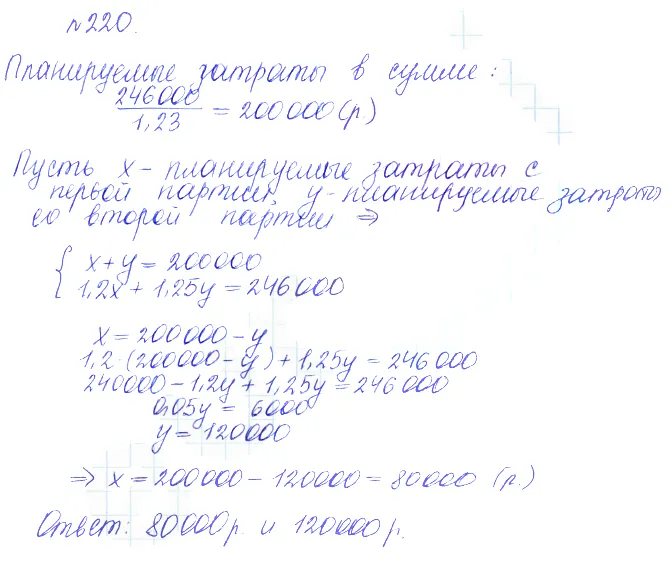 №220.
Планируемые затраты в сумме:
246000/1,23 = 200000(р.)
Пусть x - планируемые затраты с
первой партии, y - планируемые затраты
со второй партии ⇒
{ x+y = 200000
1,2x + 1,25y = 246000
x = 200000 - y
1,2·(200000 - y) + 1,25y = 246000
240000 - 1,2y + 1,25y = 246000
0,05y = 6000
y = 120000
⇒ x = 200000 - 120000 = 80000 (р.)
Ответ: 80000р. и 120000р.